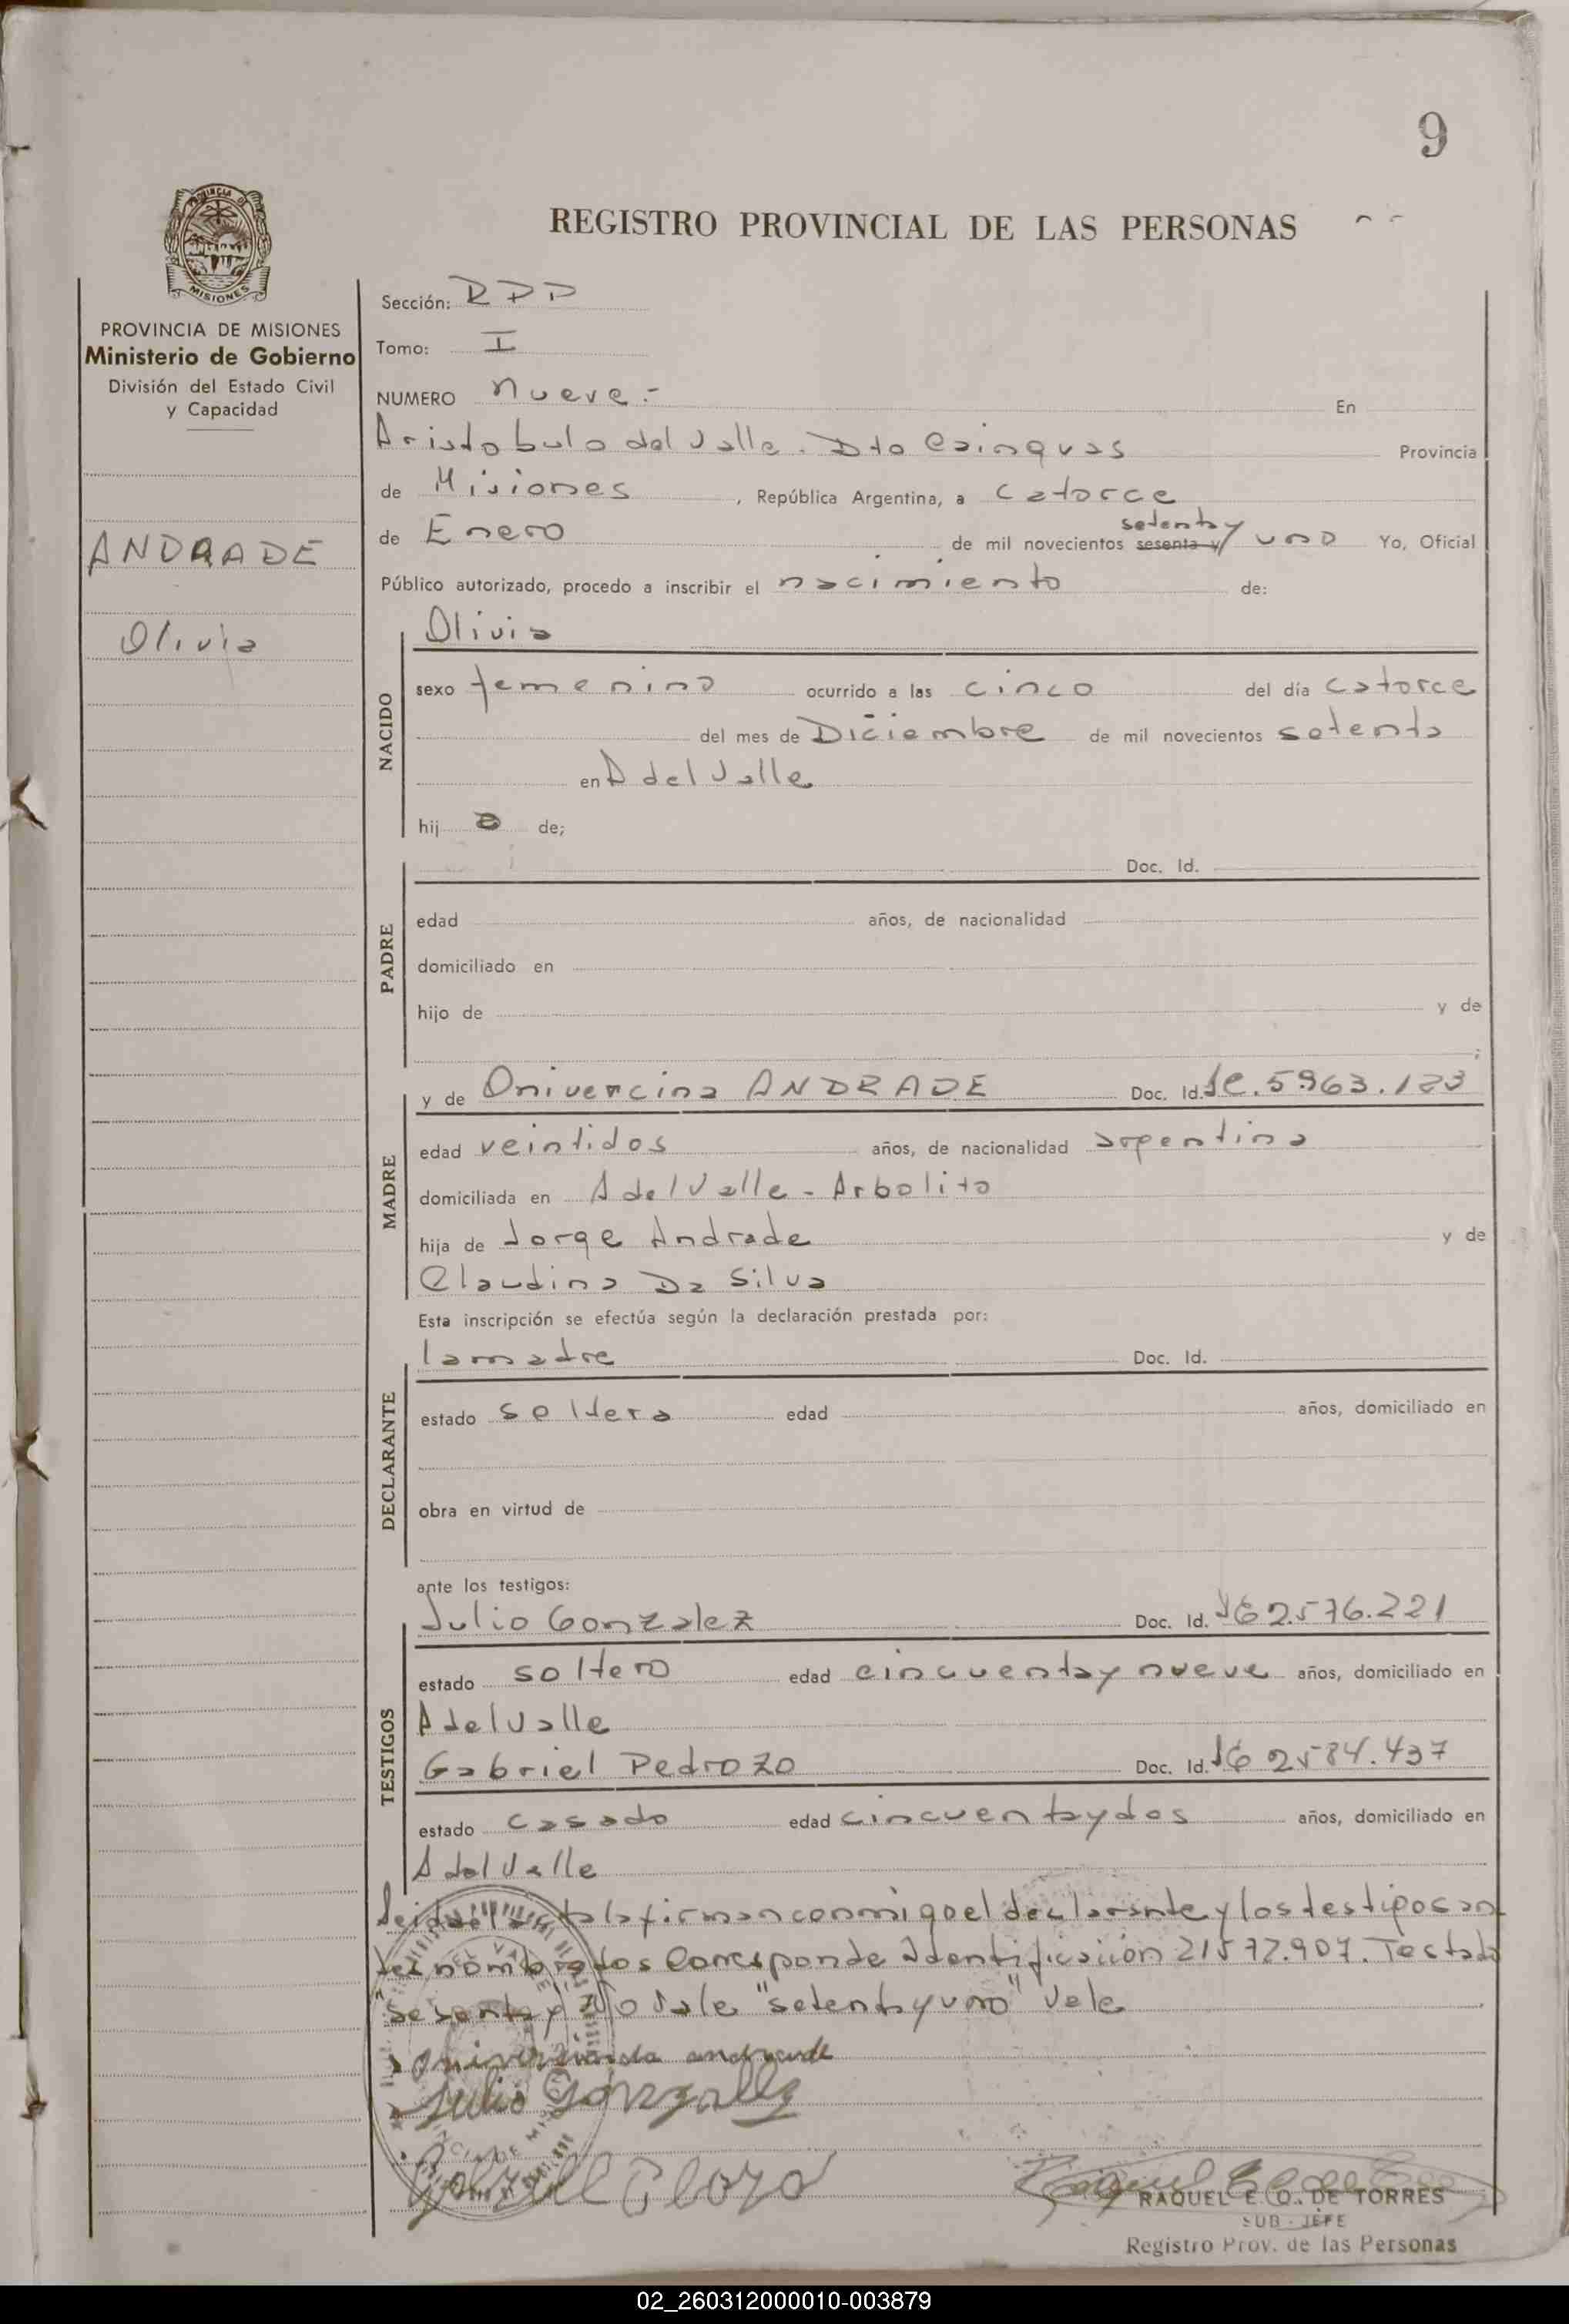 9
REGISTRO PROVINCIAL DE LAS PERSONAS
MISIONES
PROVINCIA DE MISIONES
Ministerio de Gobierno
División del Estado Civil
y Capacidad
ANDRADE
Olivia
Sección: RDD
Tomo: I
NUMERO nueve.- En
Aristobulo del Valle. Dto Cainguas Provincia
de Misiones, República Argentina, a catorce
setenta y
de Enero de mil novecientos sesenta y uno Yo, Oficial
Público autorizado, procedo a inscribir el nacimiento de:
NACIDO
Olivia
sexo femenino ocurrido a las cinco del día catorce
del mes de Diciembre de mil novecientos setenta
en A del Valle
hij a de;
PADRE
Doc. Id.
edad años, de nacionalidad
domiciliado en
hijo de y de
;
MADRE
y de Onivercina ANDRADE Doc. Id. 5.963.123
edad veintidos años, de nacionalidad argentina
domiciliada en A del Valle - Arbolito
hija de Jorge Andrade y de
Claudina Da Silva
Esta inscripción se efectúa según la declaración prestada por:
DECLARANTE
la madre Doc. Id.
estado soltera edad años, domiciliado en
obra en virtud de
ante los testigos:
TESTIGOS
Julio Gonzalez Doc. Id. 2.576.221
estado soltero edad cincuenta y nueve años, domiciliado en
A del Valle
Gabriel Pedrozo Doc. Id. 2584.437
estado casado edad cincuenta y dos años, domiciliado en
A del Valle
Leida el acta la firman conmigo el declarante y los testigos an
tes nombrados Corresponde Identificación 21572.907. Testado
"sesenta y" No Vale "setenta y uno" Vale
andrade
Julio Gonzalez
RAQUEL E. O. DE TORRES
SUB - JEFE
Registro Prov. de las Personas
02_260312000010-003879